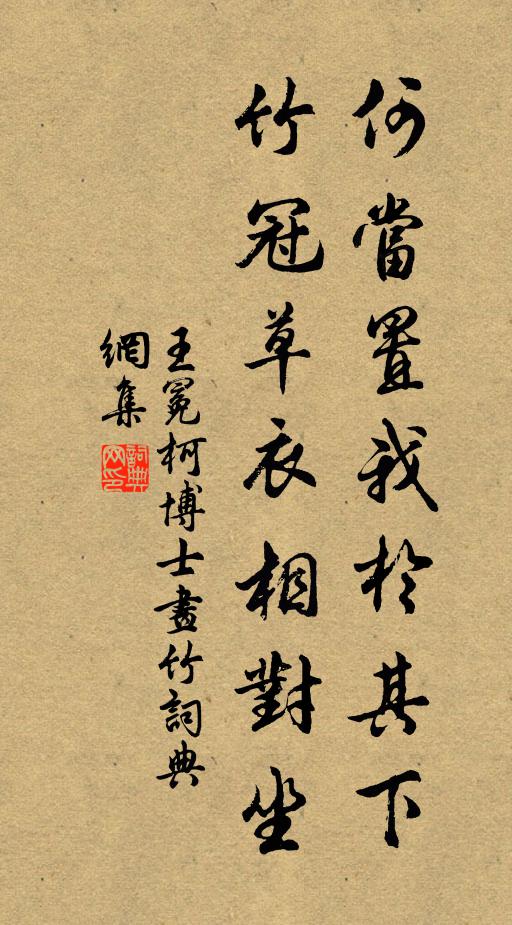 何當置我於其下
竹冠草衣相對坐
王冕柯博士畫竹詞典
網集
詞典網印